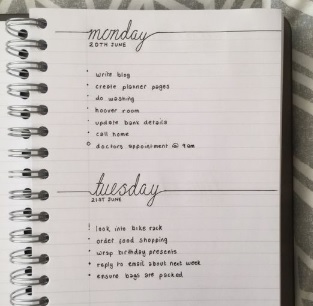 monday
20TH JUNE
· write blog
· create planner pages
· do washing
· hoover room
· update bank details
· call home
o doctors appointment @ 9am
tuesday
21ST JUNE
! look into bike rack
• order food shopping
• wrap birthday presents
• reply to email about next week
• ensure bags are packed